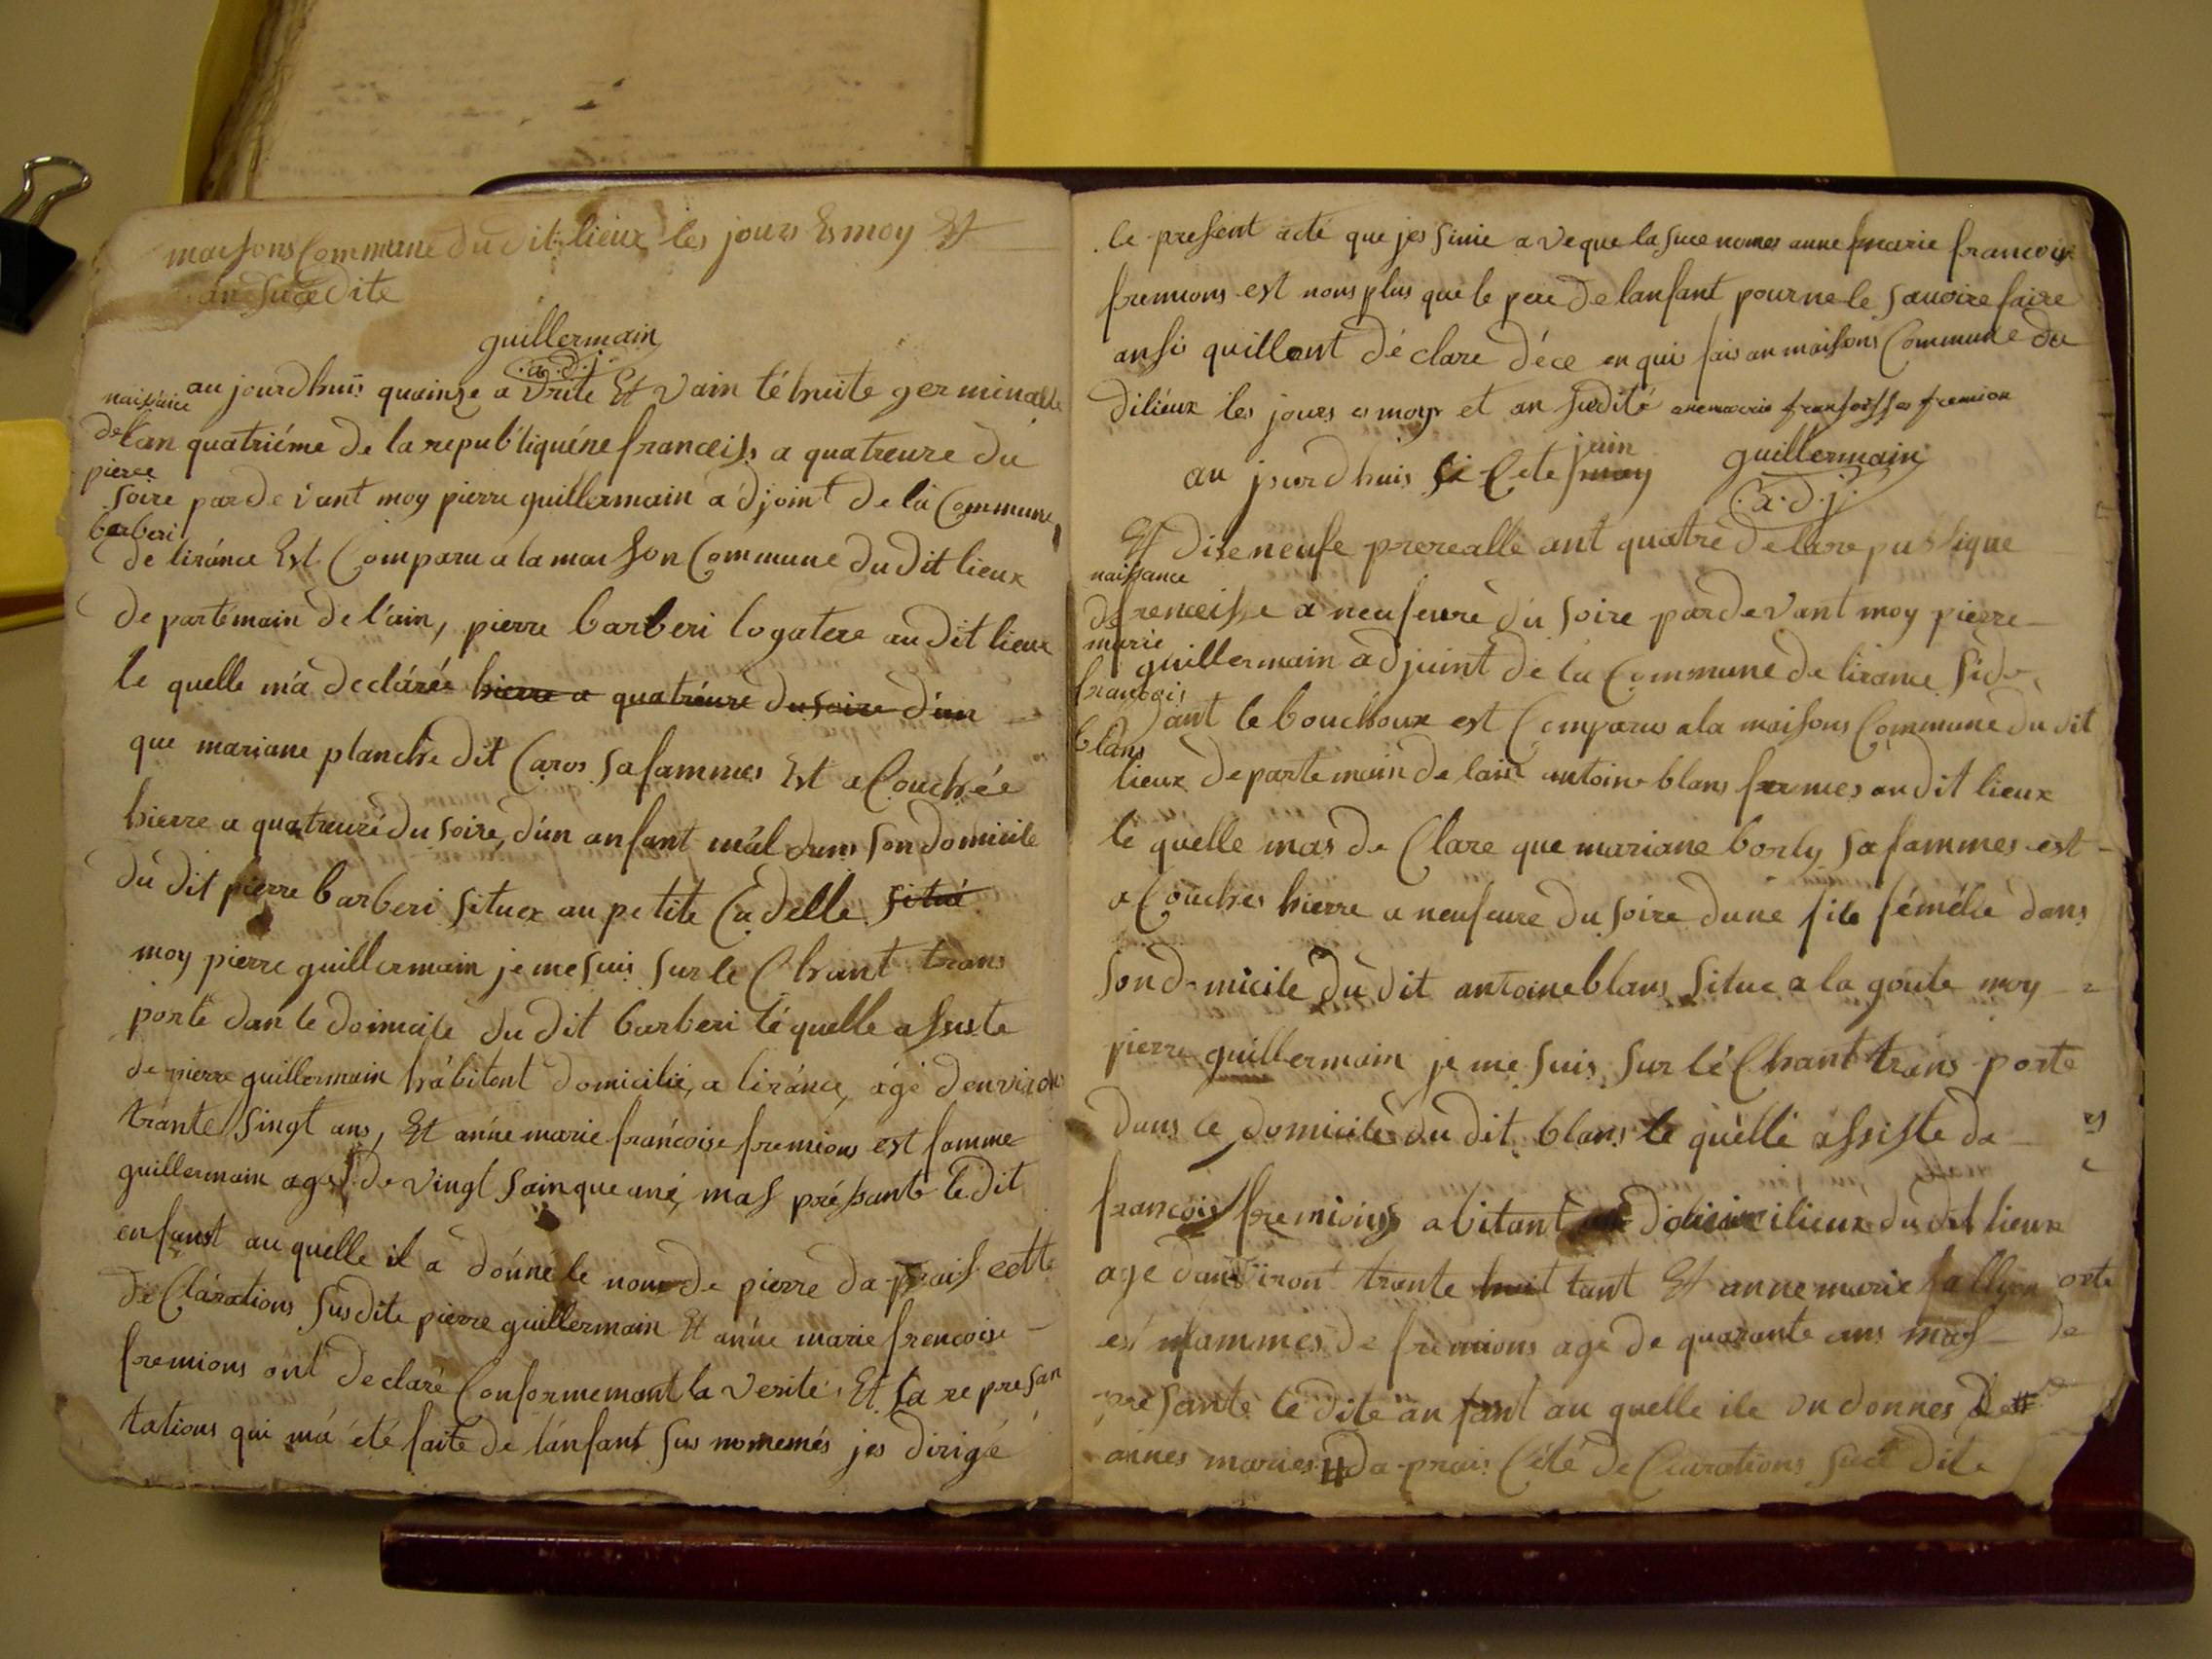 maisons Commune du dit lieux les jours Es moy Et
an suce dite
guillermain
a.d.j.
au jourdhuis quainze a vrile Et vain té huite germinalle
naissance
de
pierre
barberi
lan quatriéme de la republiquéne franceiss a quatreure du
soire parde vant moy pierre guillermain a djoint de la Commune
de liránce Est Comparu a la maison Commune du dit lieux
de partémain de l'ain, pierre barberi logatere au dit lieux
le quelle má decláréé hierre a quatréure du soire d'un
que mariane planche dit Caros sa fammes Est a Couchée
hierre a quatreuré du soire, dún anfant mâl dans son domicile
du dit pierre barberi situex au petite Cadelle situé
moy pierre guillermain je me suis sur le Chant trans
porté dan le doimcile du dit barberi lé quelle assiste
de pierre guillermain hábitent domicilié, a liránce, ágé denviron
trante singt ans, Et ánne marie francoise fremions est famme
guillermain ages de vingt sainque ané, mas présante le dit
enfanst au quelle il a dónné le nom de pierre da prais cette
de Clárations susdite pierre guillermain Et ánne marie frencoise
fremions ont declaré Conformemant la verité, Et la represan
tations qui má été faite de lánfant sus nomemés jes dirigé
le present acté que jes sinie a veque la suce nomes anne marie francoise
fremions est nons plus que le pere de lanfant pour ne le savoire faire
ansis quillont déclare déce en qui fais an maisons Commune du
diliéux les jours es moys et an sudité anemaerie fransoisses fremion
guillermain
a.d.j.
au jourdhuis si Cete juin may
Et dise neufe prereallé ant quatre de lare publique
naissance
de
marie
francois
blans
frenceisse a neufeure du soire parde vant moy pierre
guillermain adjuint de la Commune de lirance side
ant le bouchoux est Comparus a la maisons Commune du dit
lieux departemain de lain antoine blans fermes au dit lieux
le quelle mas de Clare que mariane borly sa fammes est
a Couches hierre a neufeure du soire dune file fémélle dans
son domicile du dit antoine blans situe a la goute moy
pierre guillermain je me suis sur lé Chant trans porte
dans le domicile du dit blans le quelle assiste de
francois fremions abitant domicilieux du dit lieux
age danviront trante huit tant Et anne marie fallyon
est fammes de fremions age de quarante ans mas
présante le dite an fant au quelle ile on donnes De #
annes maries # da prais Cété de Clarations sucé dite